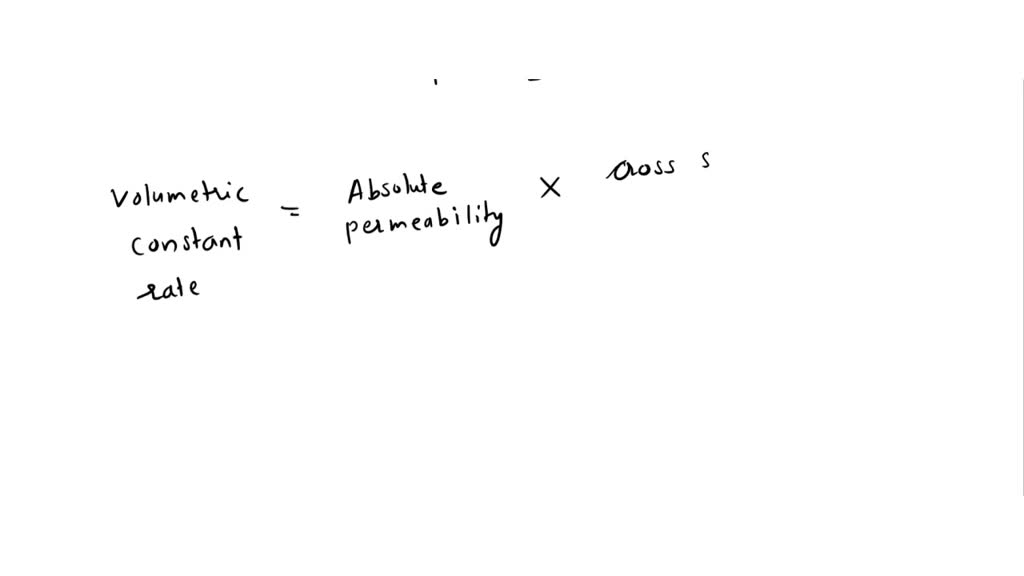 Volumetric constant rate = Absolute permeability × cross s